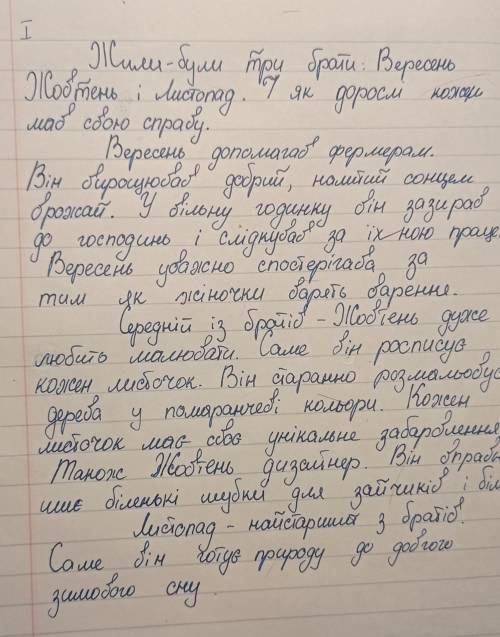 I
Жили-були три брати: Вересень
Жовтень і Листопад. І як дорослі кожен
мав свою справу.
Вересень допомагав фермерам.
Він вирощював добрий, налитий сонцем
врожай. У вільну годинку він зазирав
до господинь і слідкував за їхною праце
Вересень уважно спостерігава за
тим як жіночки варять варення.
Середній із братів - Жовтень дуже
любить малювати. Саме він росписує
кожен листочок. Він старанно розмальовує
дерева у помаранчеві кольори. Кожен
листочок має своє унікальне забарвлення
Також Жовтень дизайнер. Він вправн
шиє біленькі шубки для зайчиків і біл
Листопад - найстарший з братів.
Саме він готує природу до довгого
зимового сну.